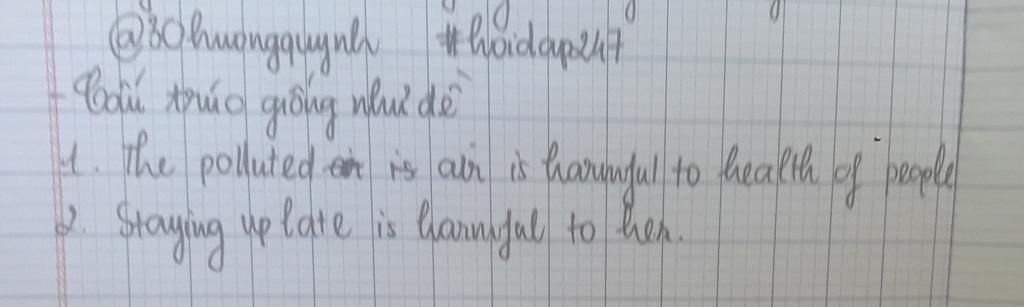 @30huongquynh #hoidap247
- Cấu trúc giống như đề
1. The polluted air is air is harmful to health of people
2. Staying up late is harmful to her.